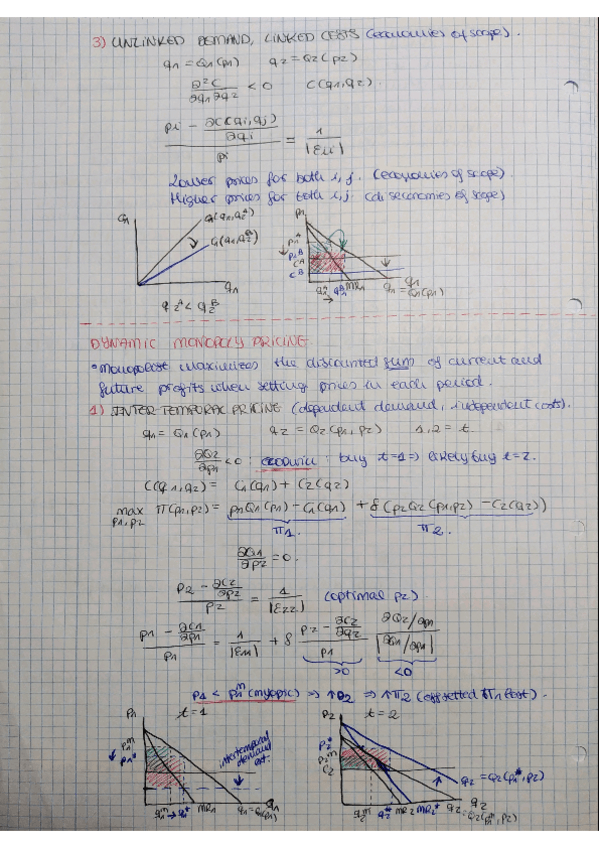 3) UNLINKED DEMAND, LINKED COSTS (economies of scope).
q1 = Q1(p1) q2 = Q2(p2)
∂²C / ∂q1∂q2 < 0 C(q1,q2)
(pi − ∂C(qi,qj)/∂qi) / pi = 1 / |εii|
Lower prices for both i, j. (economies of scope)
Higher prices for both i, j. (diseconomies of scope)
C1 C1(q1,q2^A) C1(q1,q2^B) q1
q2^A < q2^B
p1 p1^A p1^B C^A C^B q1^A q1^B MR1 q1 = Q1(p1) q1
DYNAMIC MONOPOLY PRICING
• monopolist maximizes the discounted sum of current and
future profits when setting prices in each period.
1) INTERTEMPORAL PRICING (dependent demand, independent costs).
q1 = Q1(p1) q2 = Q2(p1,p2) 1,2 = t.
∂Q2/∂p1 < 0 : goodwill : buy t=1 => likely buy t=2.
C(q1,q2) = C1(q1) + C2(q2)
max p1,p2 π(p1,p2) = p1Q1(p1) − C1(q1) + δ(p2Q2(p1,p2) − C2(q2))
π1. π2.
∂Q1/∂p2 = 0.
(p2 − ∂C2/∂p2) / p2 = 1 / |ε22| (optimal p2)
(p1 − ∂C1/∂p1) / p1 = 1 / |ε11| + δ (p2 − ∂C2/∂q2) / p1 · (∂Q2/∂p1) / |∂Q1/∂p1|
>0 <0
p1 < p1^m (myopic) => ↑p2 => ↑π2 (offsetted π1 lost).
p1 t=1 p1^m p1* intertemporal demand q1^m → q1* MR1 q1 = Q1(p1) q1
p2 t=2 p2* p2^m C2 q2 = Q2(p1*, p2) q2^m q2* MR2 MR2* q2 q2 = Q2(p1^m, p2)